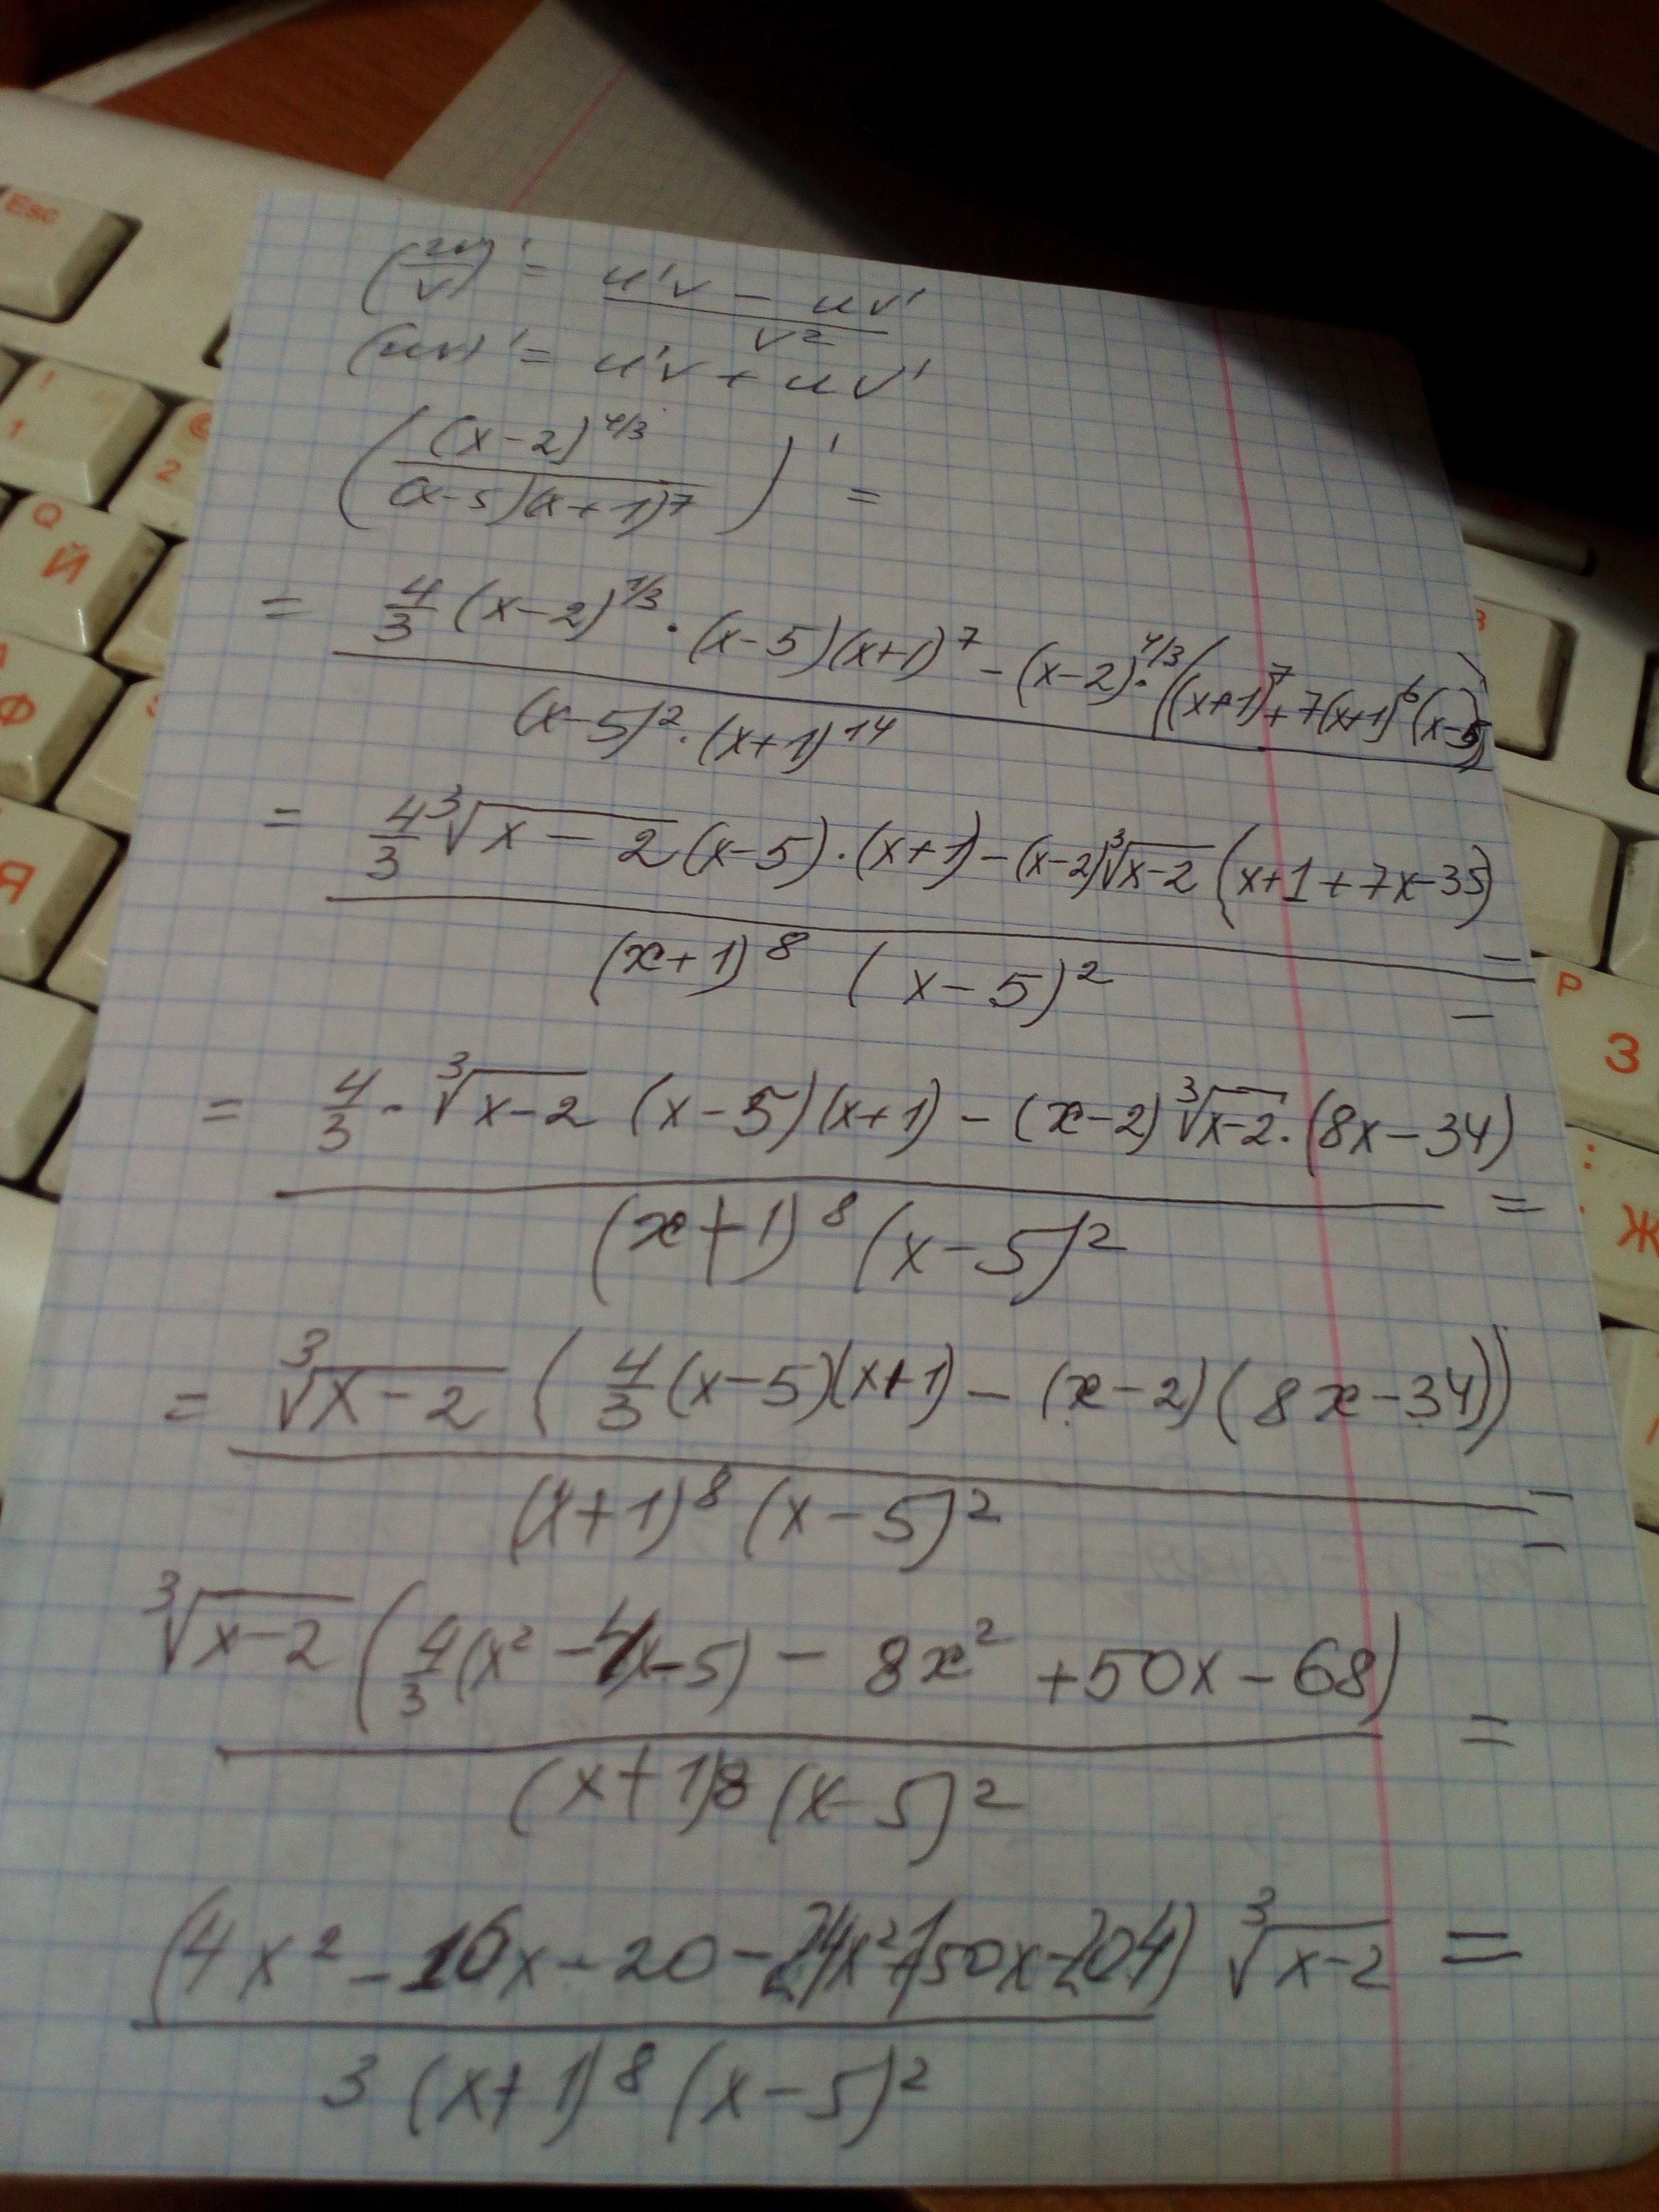 (u/v)' = (u'v - uv')/v²
(uv)' = u'v + uv'
((x-2)^4/3 / (x-5)(x+1)^7)' =
= (4/3 (x-2)^1/3 · (x-5)(x+1)^7 - (x-2)^4/3 · ((x+1)^7 + 7(x+1)^6 (x-5))) / ((x-5)² · (x+1)^14)
= (4/3 ∛(x-2) (x-5) · (x+1) - (x-2) ∛(x-2) (x+1+7x-35)) / ((x+1)^8 (x-5)²) =
= (4/3 · ∛(x-2) (x-5)(x+1) - (x-2) ∛(x-2) · (8x-34)) / ((x+1)^8 (x-5)²) =
= ∛(x-2) (4/3 (x-5)(x+1) - (x-2)(8x-34)) / ((x+1)^8 (x-5)²) =
∛(x-2) (4/3 (x²-4x-5) - 8x² + 50x - 68) / ((x+1)^8 (x-5)²) =
(4x² - 16x - 20 - 24x² + 150x - 204) ∛(x-2) / (3 (x+1)^8 (x-5)²) =
Esc
! 1
2
Q Й
Ф
Я
З
P З
: Ж